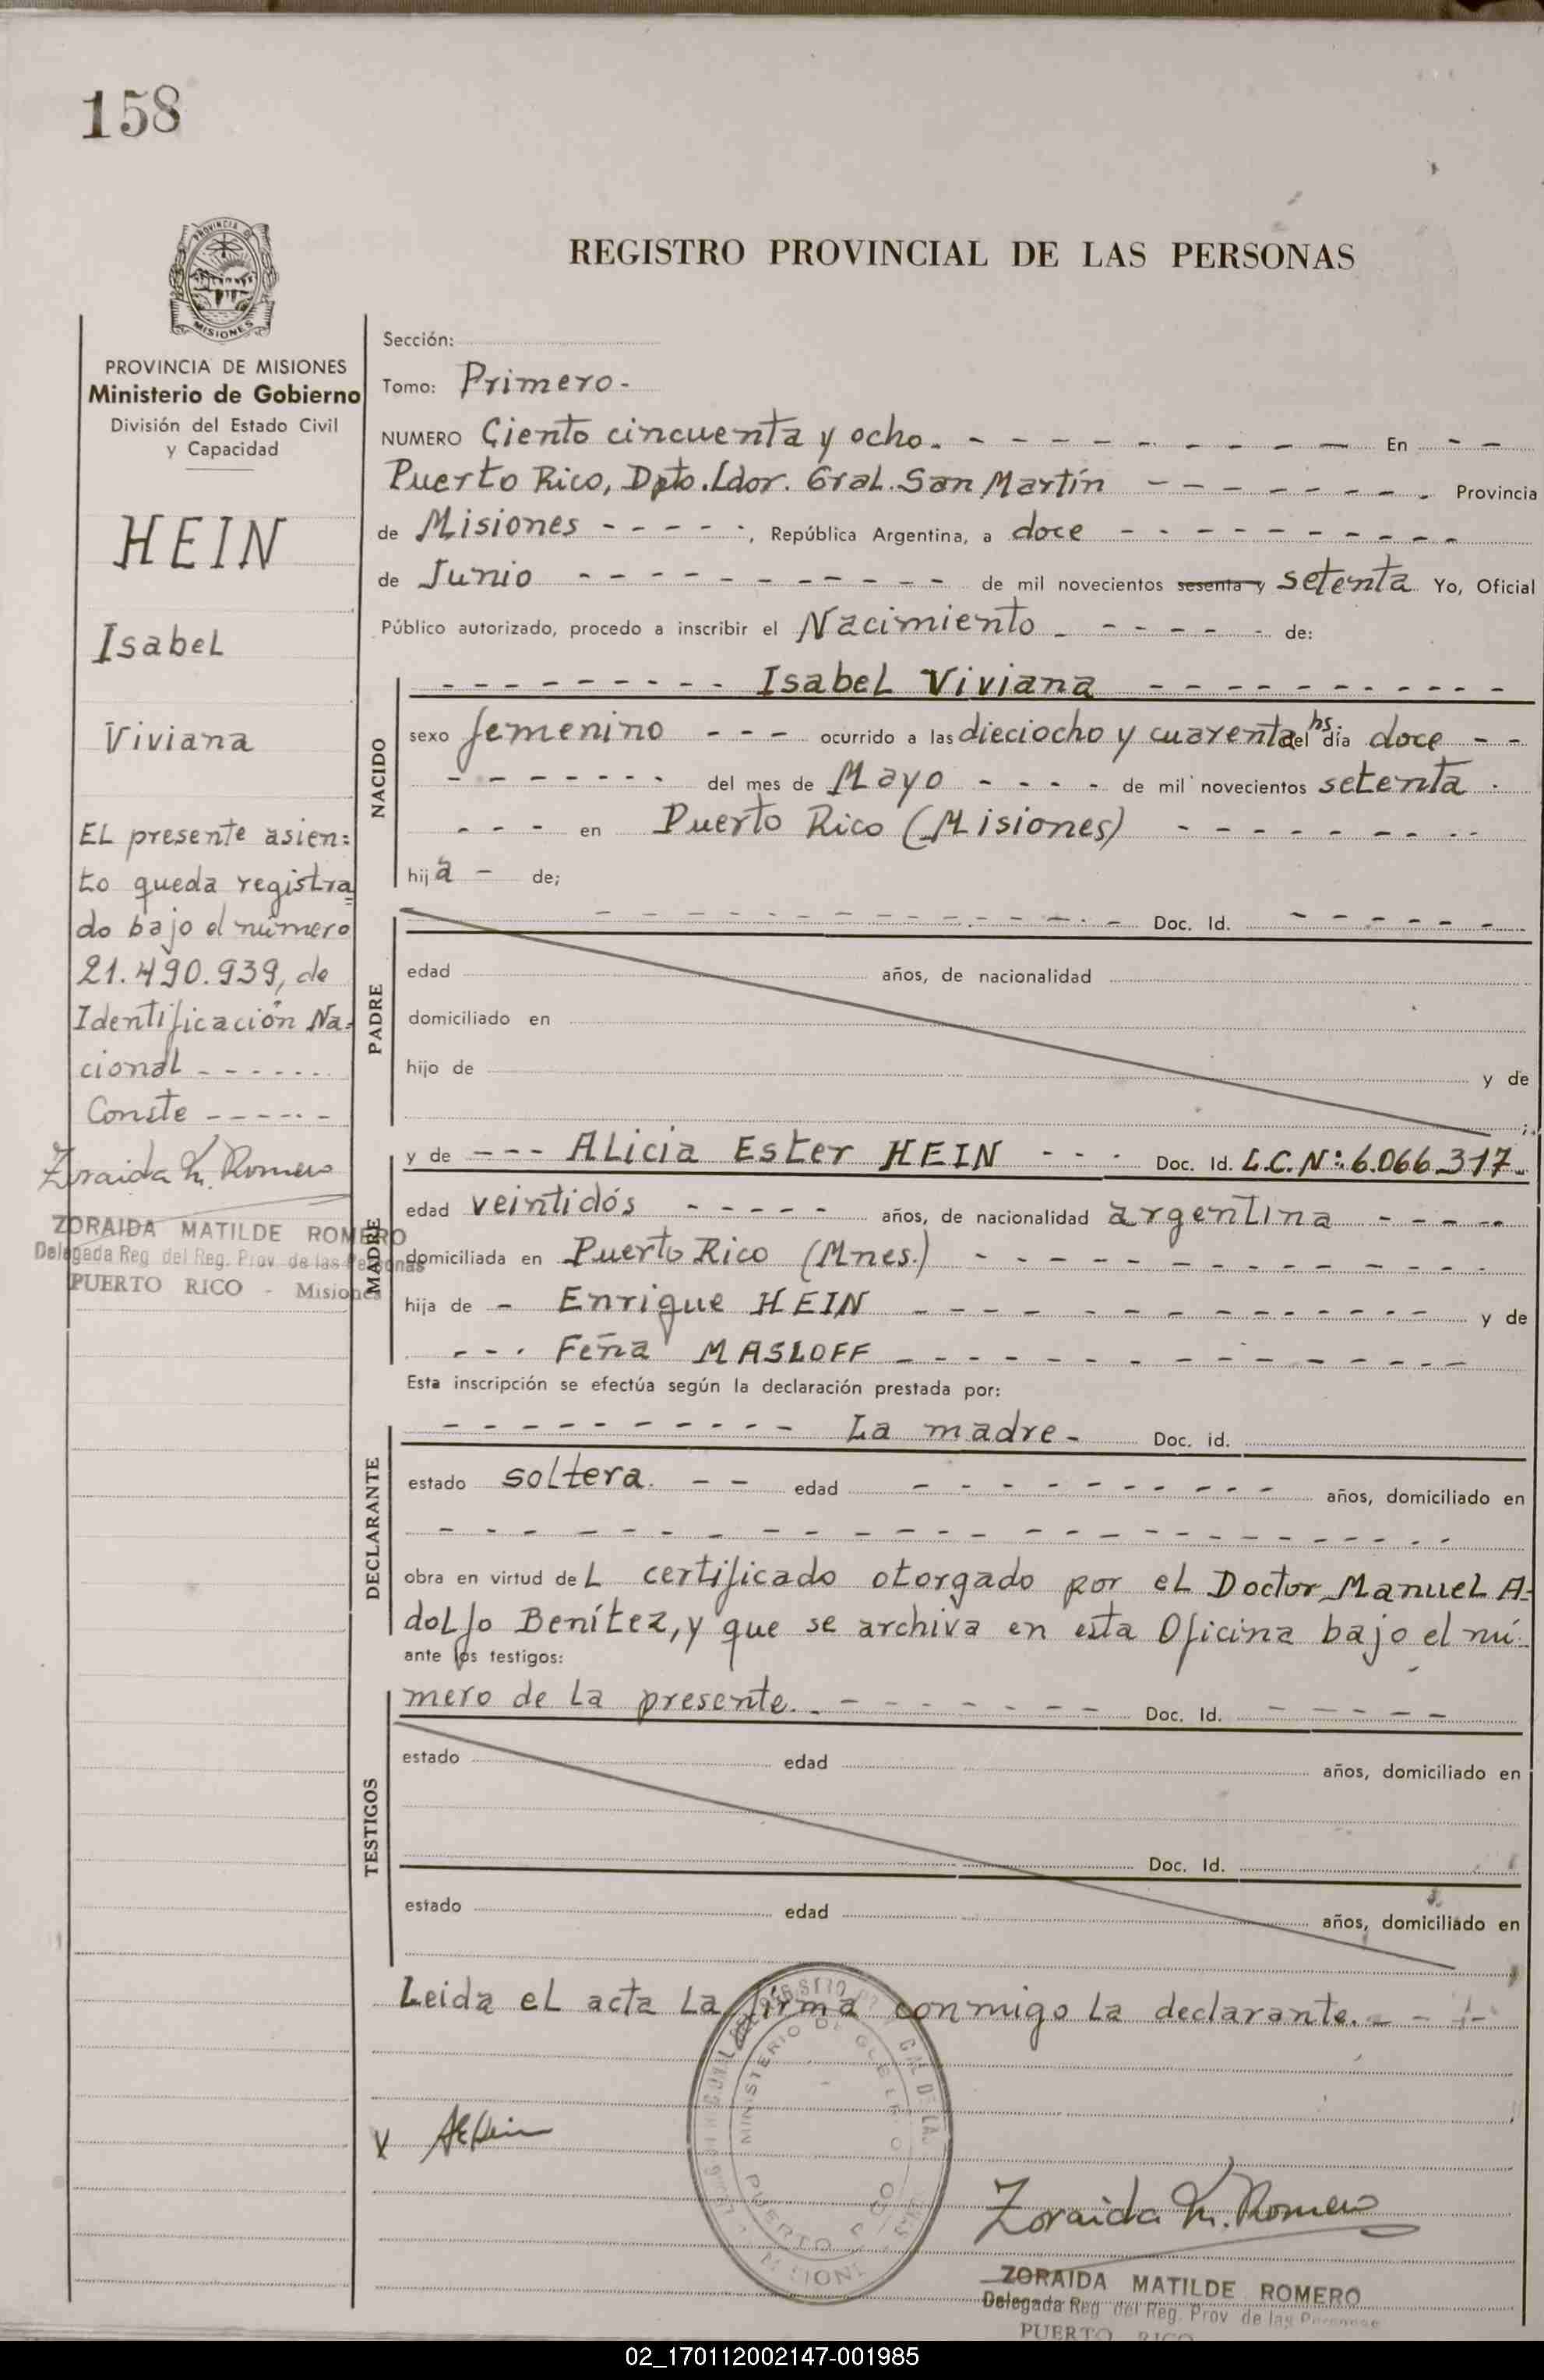 158
PROVINCIA DE
MISIONES
REGISTRO PROVINCIAL DE LAS PERSONAS
PROVINCIA DE MISIONES
Ministerio de Gobierno
División del Estado Civil
y Capacidad
HEIN
Isabel
Viviana
El presente asien=
to queda registra=
do bajo el número
21.490.939, de
Identificación Na-
cional - - - - - - -
Conste - - - - - -
Zoraida M. Romero
ZORAIDA MATILDE ROMERO
Delegada Reg. del Reg. Prov. de las Personas
PUERTO RICO - Misiones
Sección:
Tomo: Primero.-
NUMERO Ciento cincuenta y ocho. - - - - - - - - - En - -
Puerto Rico, Dpto. Ldor. Gral. San Martín - - - - - - - Provincia
de Misiones - - - - -, República Argentina, a doce - - - - - - - - - -
de Junio - - - - - - - - - - - de mil novecientos sesenta y setenta Yo, Oficial
Público autorizado, procedo a inscribir el Nacimiento - - - - - - de:
NACIDO
- - - - - - - - - - Isabel Viviana - - - - - - - - - - -
sexo femenino - - - ocurrido a las dieciocho y cuarenta hs del dia doce - -
- - - - - - - - del mes de Mayo - - - - de mil novecientos setenta -
- - - en Puerto Rico (Misiones) - - - - - - - - -
hija - de;
PADRE
- - - - - - - - - - - - - Doc. Id. - - - - - -
edad años, de nacionalidad
domiciliado en
hijo de y de
MADRE
y de - - - Alicia Ester HEIN - - - Doc. Id. L.C.Nº: 6.066.317-
edad veintidós - - - - - años, de nacionalidad argentina - - - - -
domiciliada en Puerto Rico (Mnes.) - - - - - - - - - - - - -
hija de - Enrique HEIN - - - - - - - - - - - - - y de
- - - Feña MASLOFF - - - - - - - - - - - - - -
Esta inscripción se efectúa según la declaración prestada por:
DECLARANTE
- - - - - - - - - - - La madre - Doc. id.
estado soltera. - - edad - - - - - - - - - años, domiciliado en
- - - - - - - - - - - - - - - - - - - - - - -
obra en virtud del certificado otorgado por el Doctor Manuel A-
dolfo Benítez, y que se archiva en esta Oficina bajo el nú-
ante los testigos:
TESTIGOS
mero de la presente. - - - - - - - - Doc. Id. - - - - -
estado edad años, domiciliado en
Doc. Id.
estado edad años, domiciliado en
Leida el acta la firma conmigo la declarante. - - -
x AEHein
MINISTERIO DE
PUERTO
Zoraida M. Romero
ZORAIDA MATILDE ROMERO
Delegada Reg del Reg. Prov de las Personas
PUERTO RICO
02_170112002147-001985